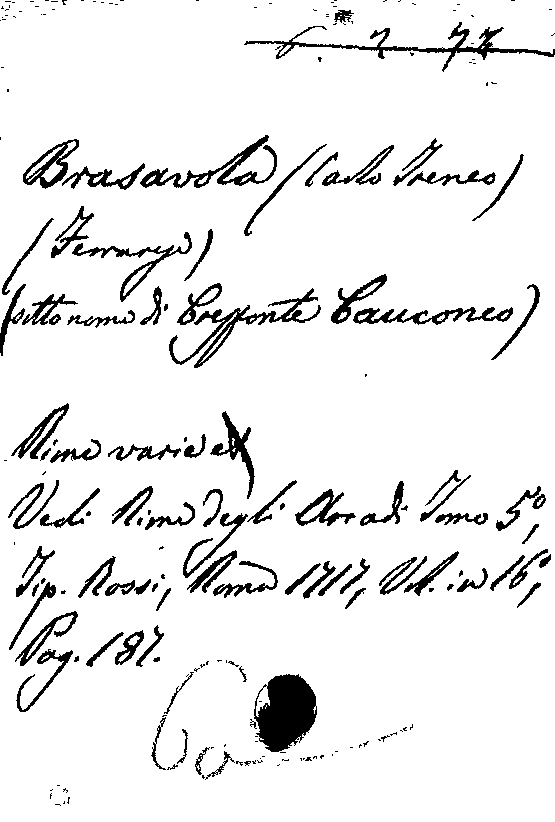 6. 2. 77
Brasavola (Carlo Ireneo)
(Ferrarese)
(sotto nome di Cresfonte Cauconeo)
Rime varie
Vedi Rime degli Arcadi Tomo 5º,
Tip. Rossi, Roma 1717, Vol. in 16º,
Pag. 187.